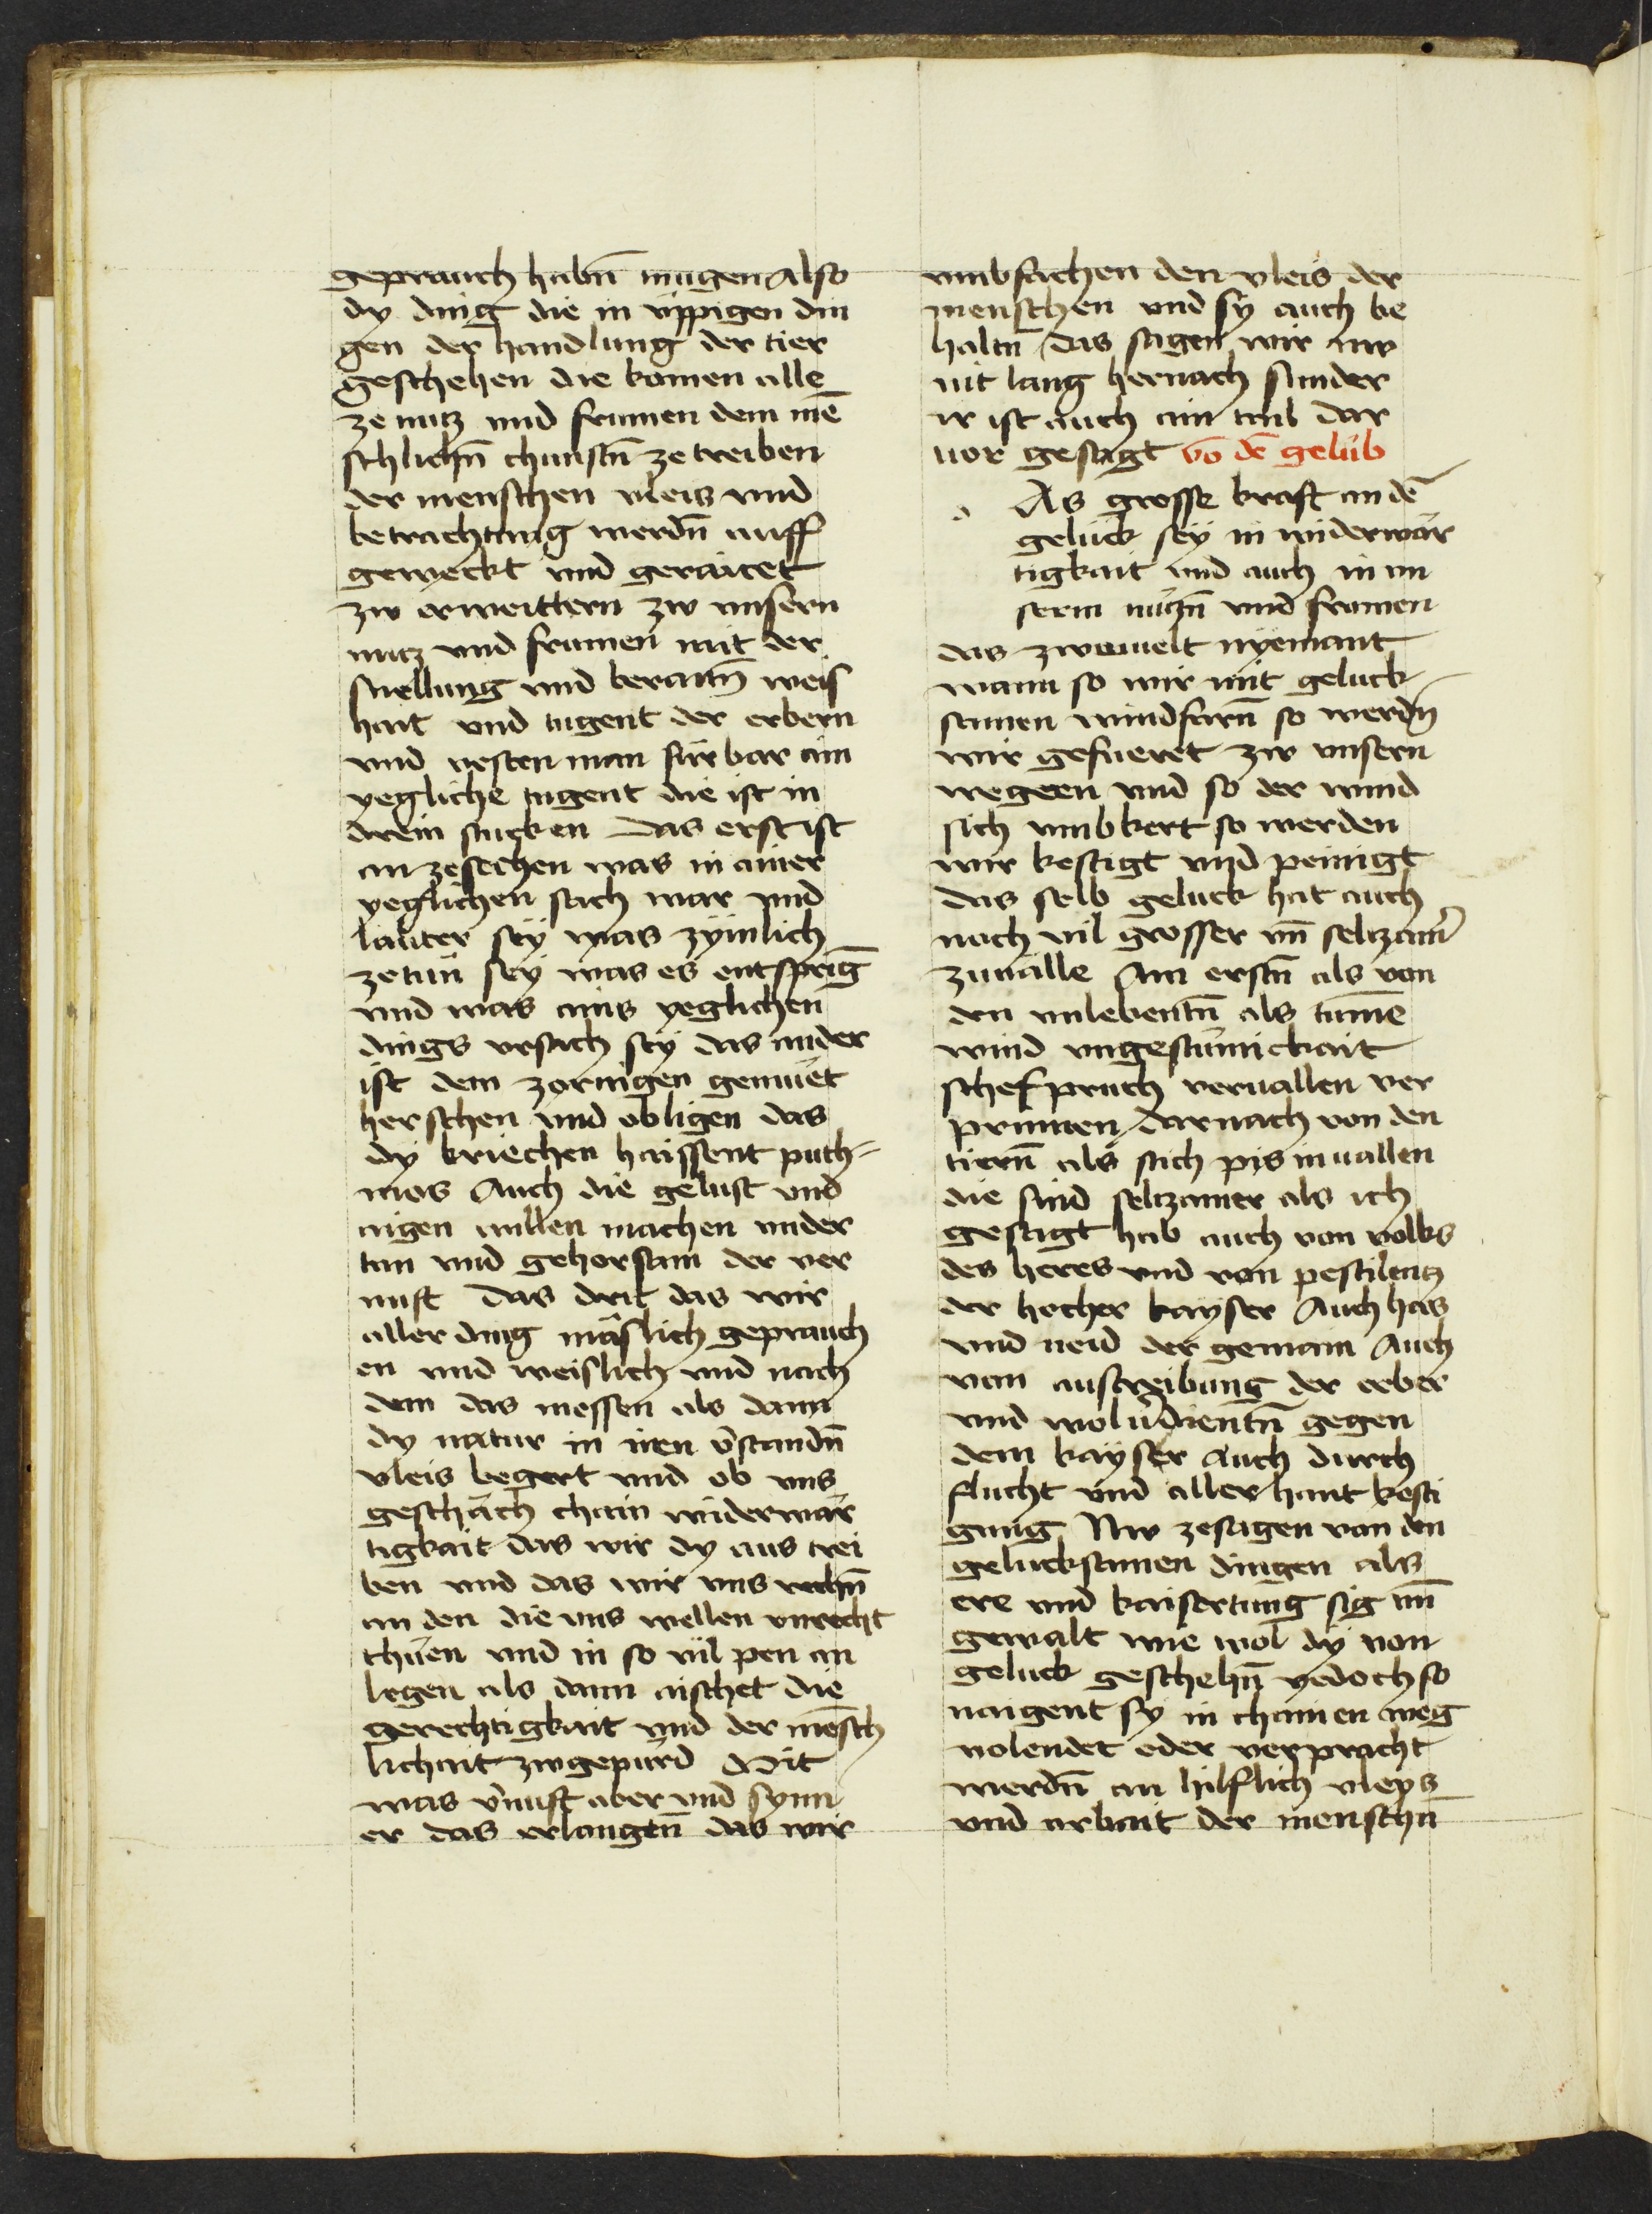 geprauch habn̄ mugen Also
dy ding die in üppigen din
gen der handlung der tier
geschehen die komen alle
ze nutz und frumen dem mē
schlichn̄ chunstn̄ ze treiben
der menschen vleis und
betrachtung werdn̄ auff
geweckt und geraitet
zw erweittern zw unsern
nutz und frumen mit der
snellung und beraitn̄ weis
hait und tugent der erbern
und vesten man fürbar ain
yegliche tugent die ist in
drein stucken Das erst ist
an zesechen was in ainer
yeglichen sach war und
lauter sey was zymlich
zetun sey was es entsprinḡ
und was ains yeglichen
dings ursach sey das ander
ist dem zornigen gemuet
herschen und obligen das
dy kriechen haissent path-
mos Auch die gelust und
aigen willen machen under
tan und gehorsam der ver
nuft Das drit das wir
aller ding mäslich geprauch
en und weislich und nach
dem das messen als dann
dy natur in iren v̄standn̄
vleis begert und ob uns
geschäch chain widerwär
tigkait das wir dy aus trei
ben und das wir uns rechn̄
an den die uns wellen unrecht
thuen und in so vil pen an
legen als dann aischet die
gerechtigkait und der mensch
lichait zwgepürd Mit
was v̄nuft aber und synn
er das erlangen̄ das wir
umbfachen den vleis der
menschen und sy auch be
haltn̄ das sagen wir nw
nit lang hernach sunder
ir ist auch ain tail dar
vor gesagt vō dē gelüb
d As grosse kraft an dē
gelück sey in widerwär
tigkait und auch in un
serm nutzn̄ und frumen
das zweivelt nyemant
wann so wir mit geluck
samen wind farn̄ so werdn̄
wir gefueret zw unsern
wegeen und so der wind
sich umbkert so werden
wir kestigt und peinigt
das selb geluck hat auch
noch vil grosser un̄ seltzamer
zuvälle Am erstn̄ als von
den unlebentn̄ als tumē
wind ungestümickait
schefpruch vervallen ver
prinnen darnach von den
tiern̄ als stich pis invallen
die sind seltzamer als ich
gesagt hab auch von volks
des heres und von pestilentz
der hocher kayser Auch has
und neid der gemain Auch
von austreibung der erber
und wolv̄dientn̄ gegen
dem kayser Auch durch
flucht und allerhant kesti
gung Nw zesagen von den
gelucksamen dingen als
ere und kaisertung sig un̄
gewalt wie wol dy von
geluck geschehn̄ yedoch so
naigent sy in chainen weg
volendet oder verpracht
werdn̄ an hilflich vleys
und arbait der menschn̄